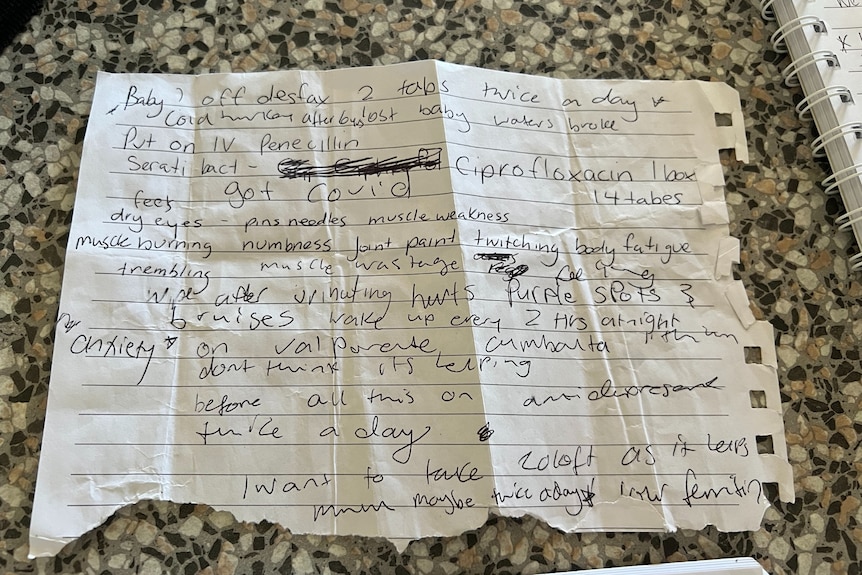 Baby? off desfax 2 tabs twice a day
lost baby waters broke
Put on IV Penecillin
Serati bact - Ciprofloxacin 1 box
feet got Covid 14 tabes
dry eyes - pins needles muscle weakness
muscle burning numbness joint paint twitching body fatigue
trembling muscle wastage
wipe after urinating hurts Purple spots &
bruises wake up every 2 Hrs at night
anxiety on valparate cymbalta lithium
dont think its helping
before all this on antidepresent
twice a day
I want to take zoloft as it helps
mum maybe twice a day low ferritin